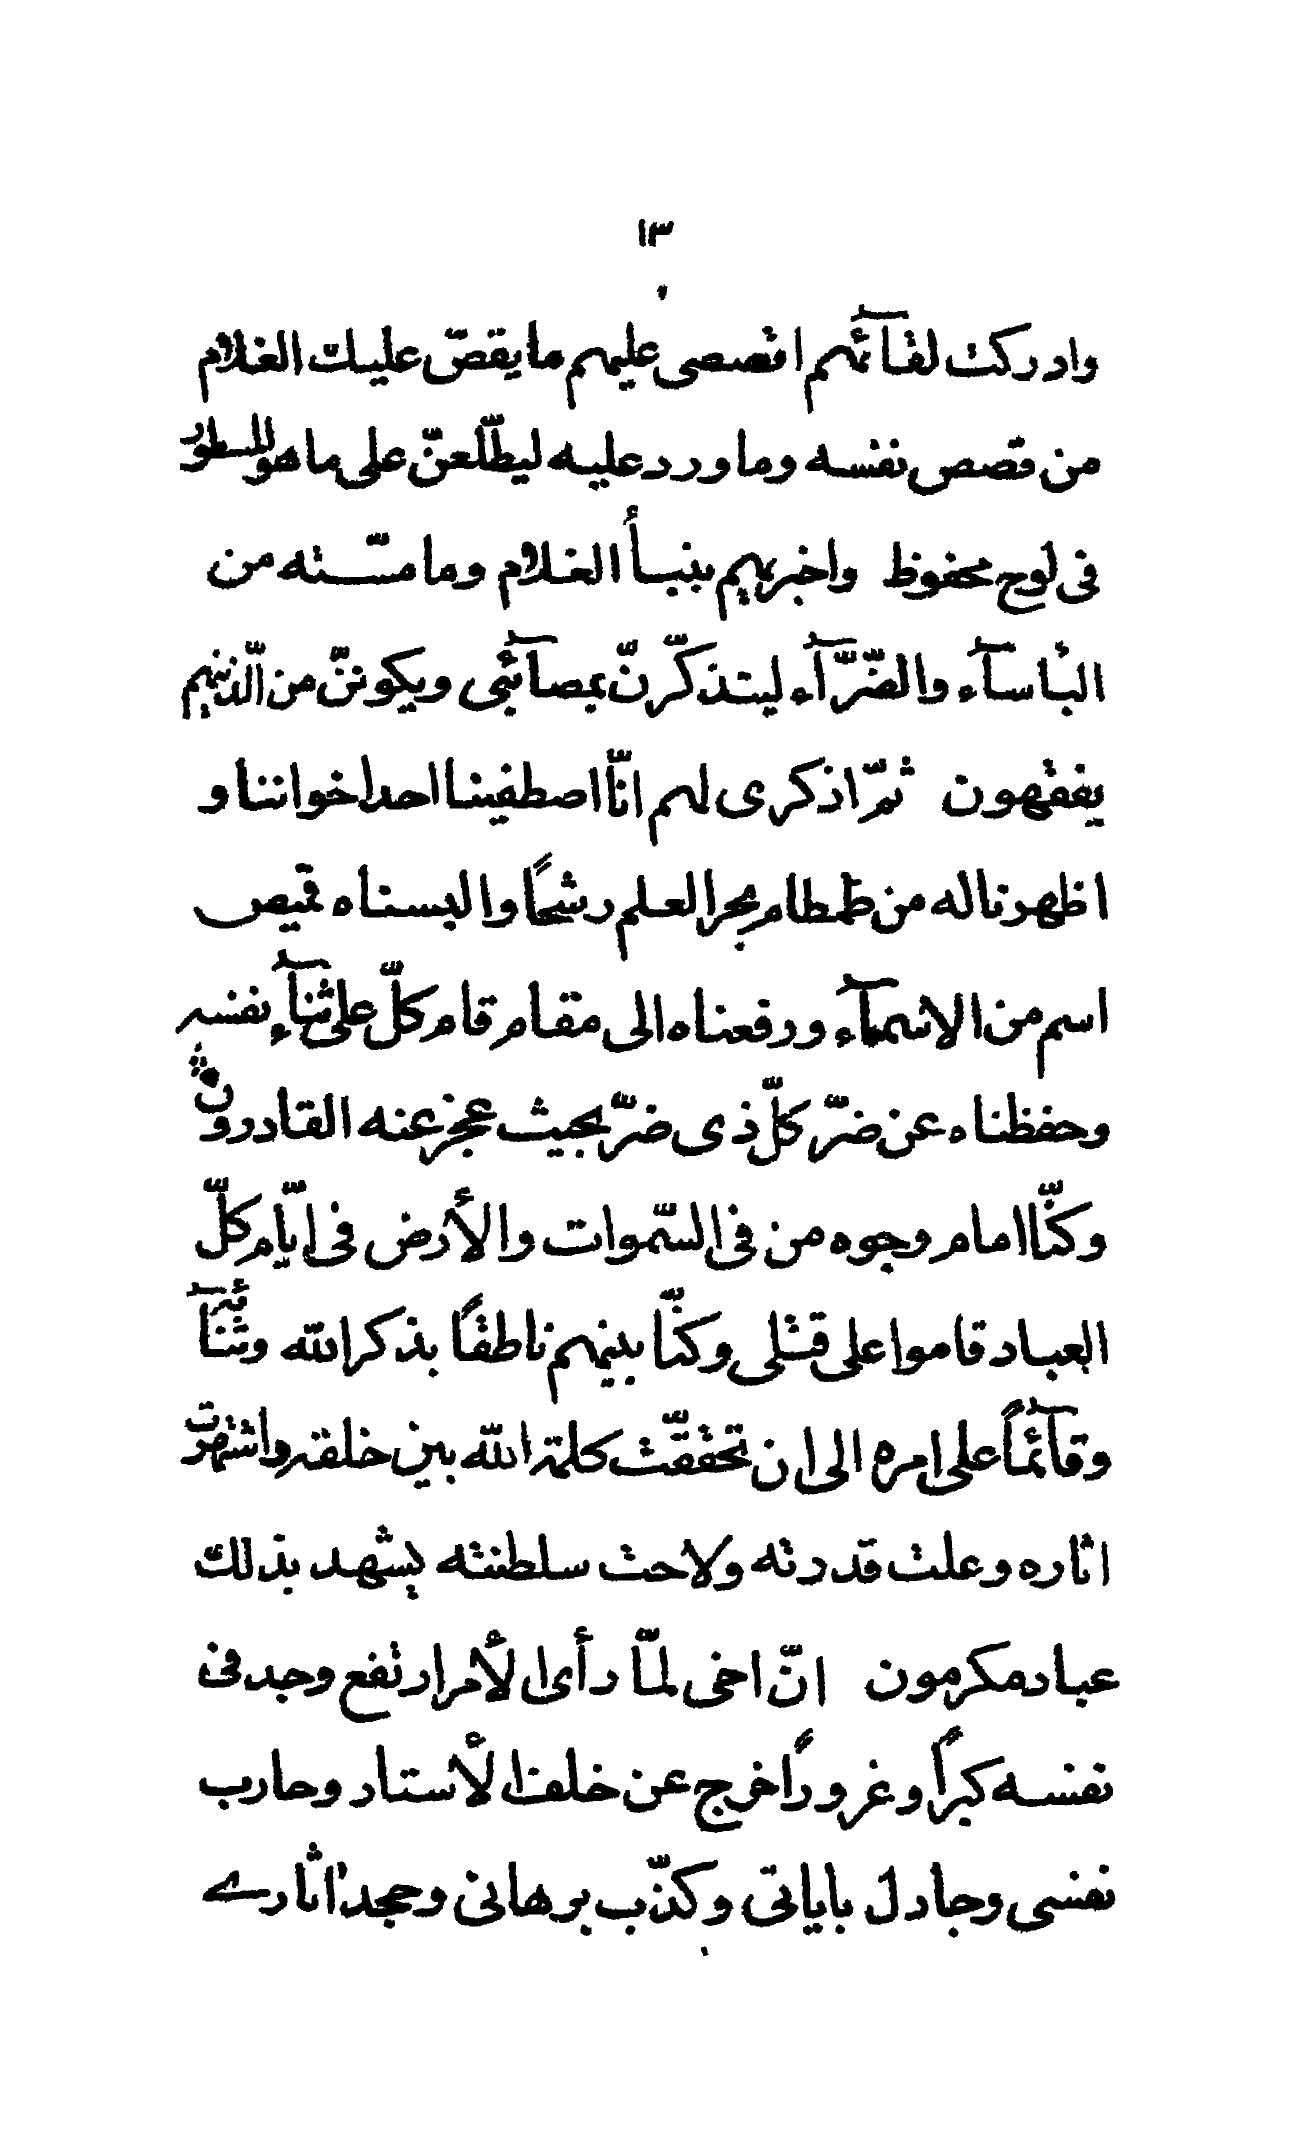 ١٣
وادركت لقآئهم اقصصى عليهم ما يقصّ عليك الغلام
من قصص نفسه وما ورد عليه ليطّلعنّ على ما هو المسطور
فى لوح محفوظ واخبريهم بنبأ الغلام وما مسّته من
البأسآء والضّرّآء ليتذكّرنّ بمصآئبى ويكوننّ من الّذينهم
يفقهون ثمّ اذكرى لهم انّا اصطفينا احدا خواننا و
اظهرنا له من طمطام بحر العلم رشحًا والبسناه قميص
اسم من الاسمآء ورفعناه الى مقام قام كلّ على ثنآء نفسه
وحفظناه عن ضرّ كلّ ذى ضرّ بحيث عجز عنه القادرون
وكنّا امام وجوه من فى السّموات والأرض فى ايّام كلّ
العباد قاموا على قتلى وكنّا بينهم ناطقًا بذكر الله وثنآئه
وقآئمًا على امره الى ان تحقّقت كلمة الله بين خلقه واشتهرت
اثاره وعلت قدرته ولاحت سلطنته يشهد بذلك
عباد مكرمون انّ اخى لمّا رأى الأمر ارتفع وجد فى
نفسه كبرًا وغرورًا خرج عن خلف الأستار وحارب
نفسى وجادل باياتى وكذّب برهانى وجحد اثارى